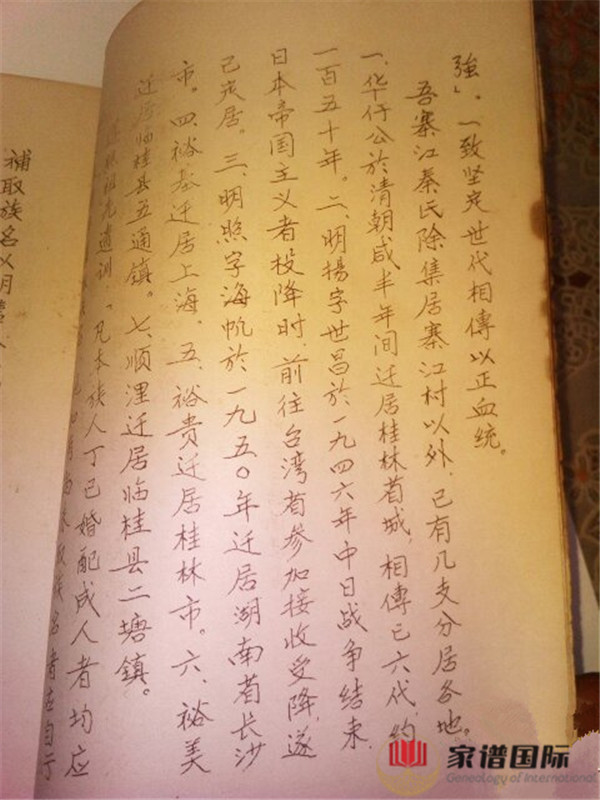 強」。一致坚定世代相傳以正血统。
吾寨江秦氏除集居寨江村以外，已有几支分居各地。
一、华仔公於清朝咸半年间迁居桂林省城，相傳已六代，约
一百五十年。二、明揚字世昌於一九四六年中日战争结束，
日本帝国主义者投降时，前往台湾省参加接收受降，遂
己定居。三、明照字海帆於一九五〇年迁居湖南省长沙
市。四、裕基迁居上海，五、裕贵迁居桂林市。六、裕美
迁居临桂县五通镇。七、顺浬迁居临桂县二塘镇。
祖先遗训，「凡本族人丁已婚配成人者均应
族名者在自于
補取族名以明
家谱国际
Genealogy of International